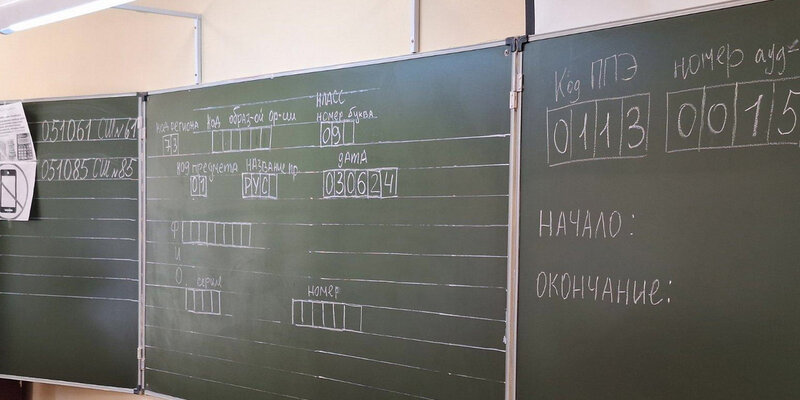 051061 СШ№61
051085 СШ №85
КЛАСС
код региона код образ-ой ор-ии номер буква
73 09
код предмета название пр дата
01 РУС 030624
Ф
И
О
серия номер
Код ППЭ номер ауд-
0113 0015
НАЧАЛО:
ОКОНЧАНИЕ: